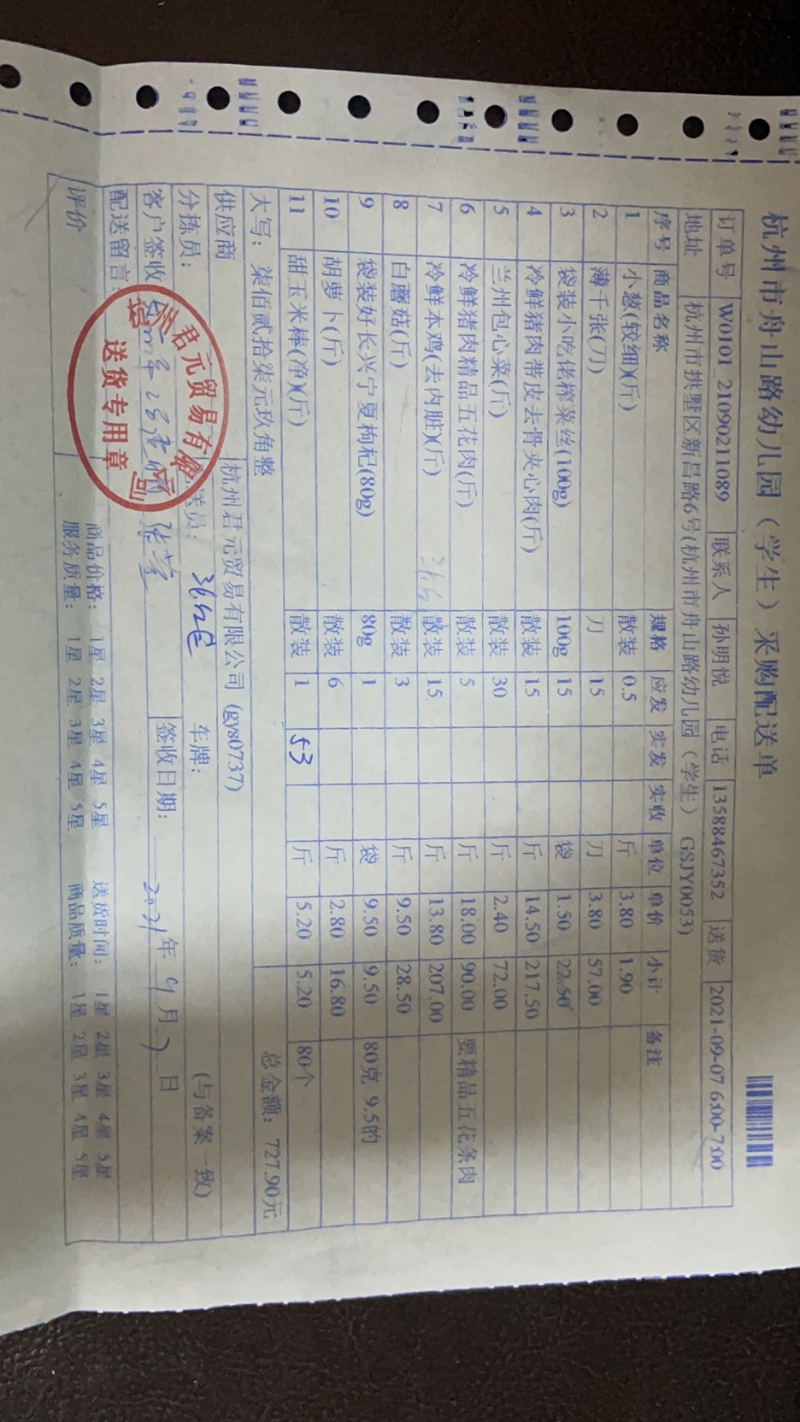 杭州市舟山路幼儿园（学生）采购配送单
订单号 W0101 21090211089 联系人 孙明悦 电话 13588467352 送货 2021-09-07 6:00-7:00
地址 杭州市拱墅区新昌路6号(杭州市舟山路幼儿园（学生） GSJY0053)
序号 商品名称 规格 应发 实发 实收 单位 单价 小计 备注
1 小葱(较细)(斤) 散装 0.5 斤 3.80 1.90
2 薄千张(刀) 刀 15 刀 3.80 57.00
3 袋装小吃佬榨菜丝(100g) 100g 15 袋 1.50 22.50
4 冷鲜猪肉带皮去骨夹心肉(斤) 散装 15 斤 14.50 217.50
5 兰州包心菜(斤) 散装 30 斤 2.40 72.00
6 冷鲜猪肉精品五花肉(斤) 散装 5 斤 18.00 90.00 要精品五花条肉
7 冷鲜本鸡(去内脏)(斤) 散装 15 斤 13.80 207.00
8 白蘑菇(斤) 散装 3 斤 9.50 28.50
9 袋装好长兴宁夏枸杞(80g) 80g 1 袋 9.50 9.50 80克 9.5的
10 胡萝卜(斤) 散装 6 斤 2.80 16.80
11 甜玉米棒(净)(斤) 散装 1 53 斤 5.20 5.20 80个
大写：柒佰贰拾柒元玖角整 总金额：727.90元
供应商 杭州君元贸易有限公司 (gys0737)
分拣员： 送员： 车牌： (与备案一致)
客户签收 签收日期： 2021年9月7日
配送留言：
评价 商品价格： 1星 2星 3星 4星 5星 送货时间： 1星 2星 3星 4星 5星
服务质量： 1星 2星 3星 4星 5星 商品质量： 1星 2星 3星 4星 5星
州君元贸易有
送货专用章